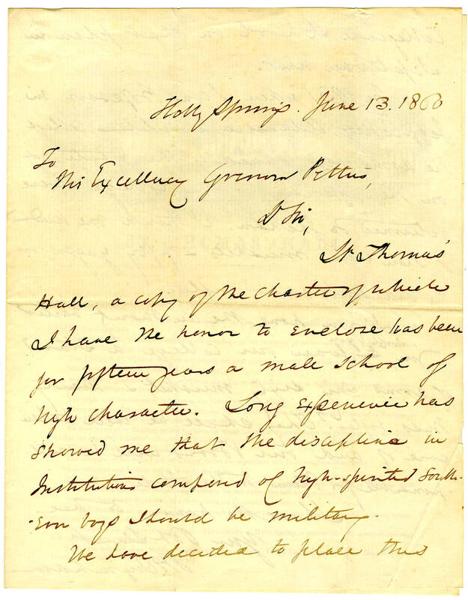 Holly Springs. June 13. 1860
To
His Excellency Governor Pettus,
D Sir,
St Thomas'
Hall, a copy of the charter of which
I have the honor to enclose has been
for fifteen years a male school of
high character. Long experience has
showed me that the discipline in
Institutions composed of high-spirited South-
-ern boys should be military.
We have decided to place this